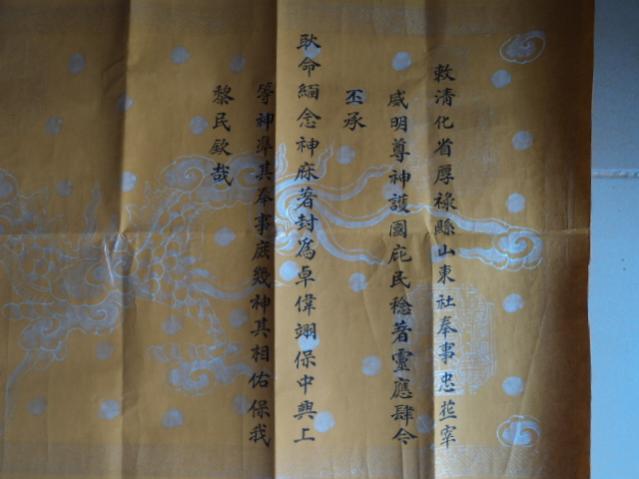 敕清化省厚祿縣山東社奉事忠莊宰
威明尊神護國庇民稔著靈應肆今
丕承
耿命緬念神庥著封爲卓偉翊保中興上
等神準其奉事庶幾神其相佑保我
黎民欽哉